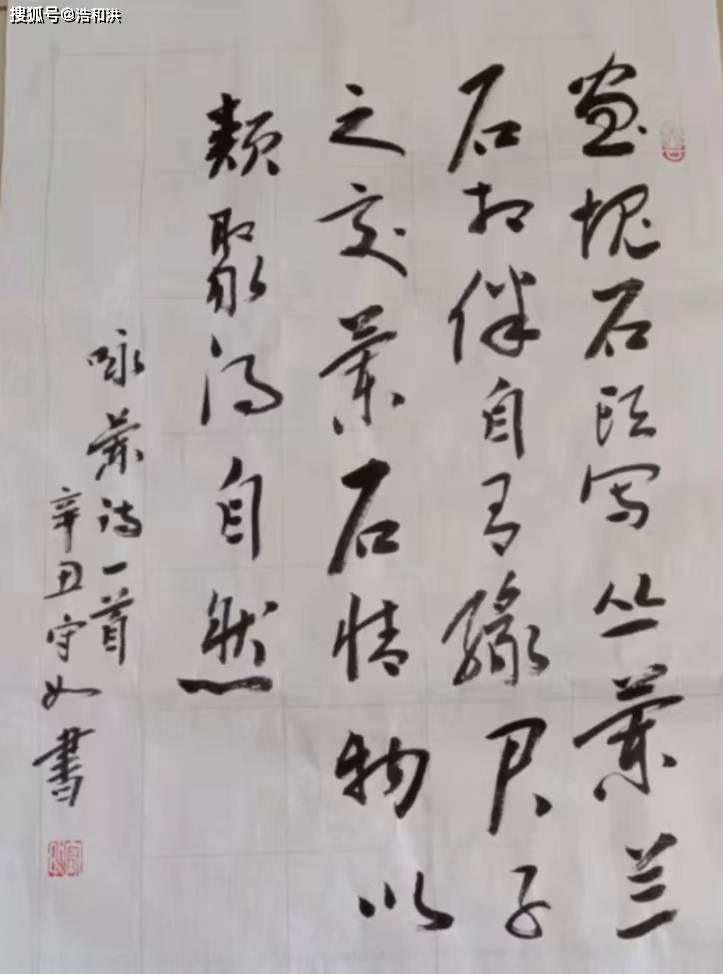 搜狐号@浩和洪
画块石头写丛兰兰
石相伴自有缘君子
之交兰石情物以
类聚得自然
咏兰诗一首
辛丑守如書